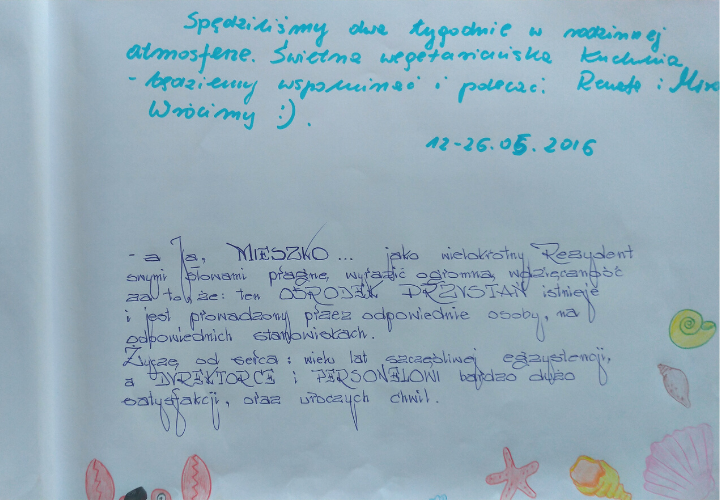 Spędziliśmy dwa tygodnie w rodzinnej
atmosferze. Świetna wegetariańska kuchnia
- będziemy wspominać i polecać. Renata i
Wrócimy :).
12-26.05.2016
- a Ja, MIESZKO ... jako wielokrotny Rezydent
swymi słowami pragnę wyrazić ogromną wdzięczność
za to, że: ten OŚRODEK PRZYSTAŃ istnieje
i jest prowadzony przez odpowiednie osoby, na
odpowiednich stanowiskach.
Życzę od serca: wielu lat szczęśliwej egzystencji,
a DYREKTORCE i PERSONELOWI bardzo dużo
satysfakcji, oraz uroczych chwil.